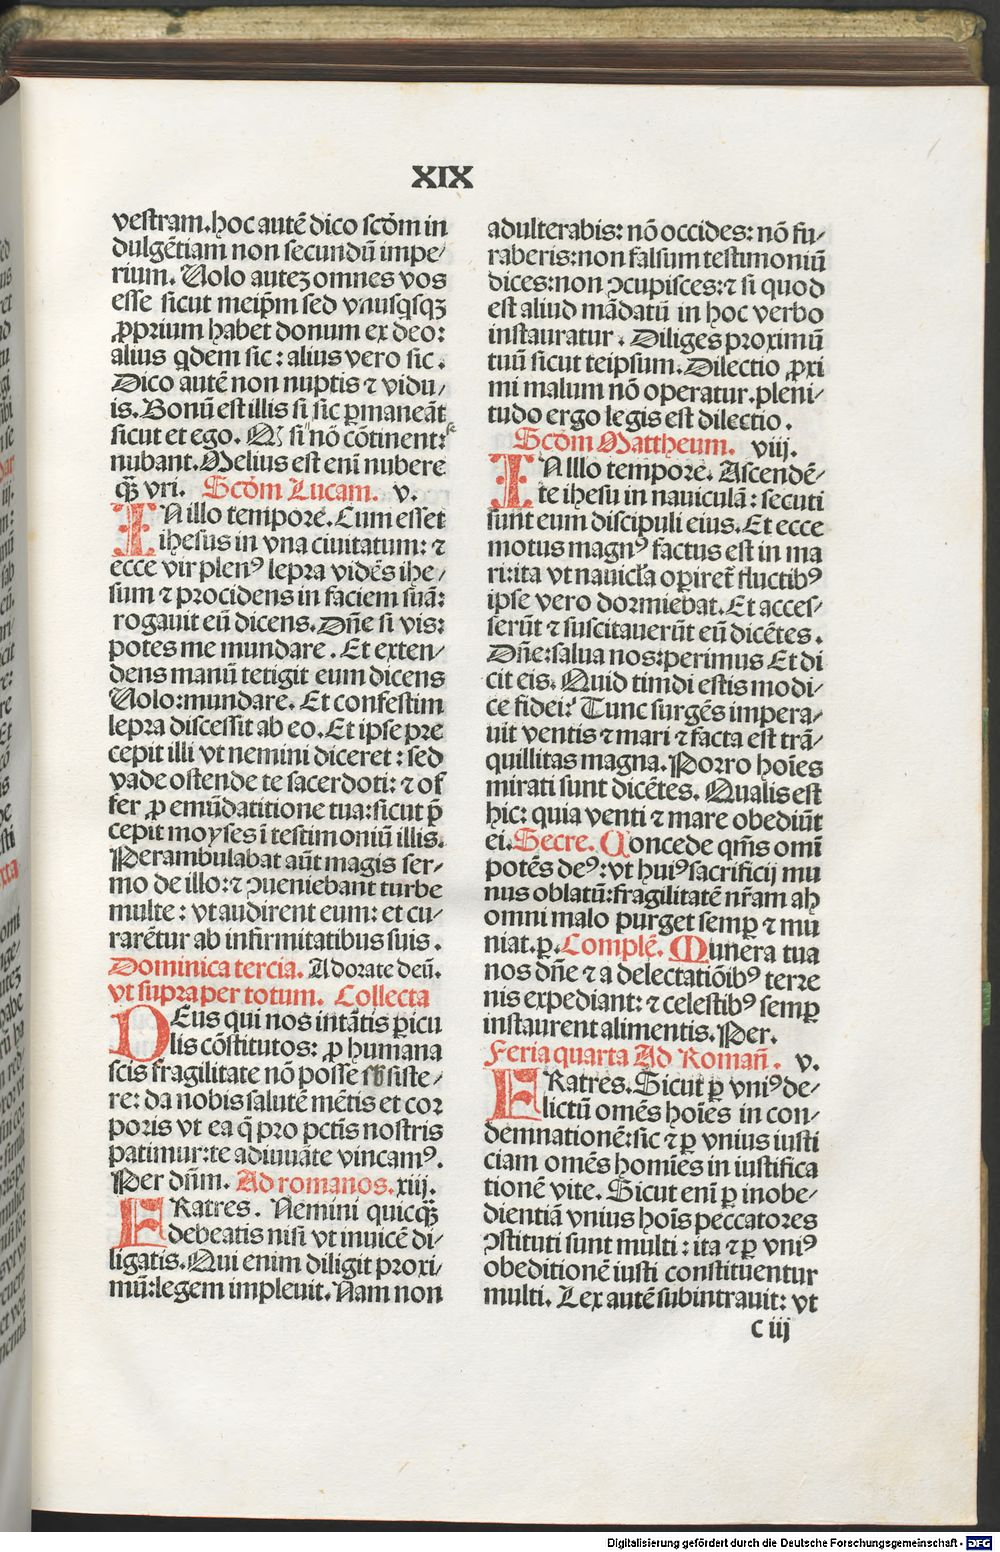 XIX
vestram. hoc autē dico scḋm in
dulgētiam non secundū impe⸗
rium. Uolo autez omnes vos
esse sicut meip̄m sed vnusqsqꝫ
ꝓprium habet donum ex deo:
alius qdem sic: alius vero sic.
Dico autē non nuptis ⁊ vidu⸗
is. Bonū est illis si sic ꝑmaneāt
sicut et ego. Qꝫ si nō cōtinent: se
nubant. Melius est eni nubere
qꝫ vri. Scḋm Lucam. v.
IN illo tempore. Cum esset
ihesus in vna ciuitatum: ⁊
ecce vir plenꝰ lepra vidēs ihe⸗
sum ⁊ procidens in faciem suā:
rogauit eū dicens. Dn̄e si vis:
potes me mundare. Et exten⸗
dens manū tetigit eum dicens
Uolo: mundare. Et confestim
lepra discessit ab eo. Et ipse pre
cepit illi vt nemini diceret: sed
vade ostende te sacerdoti: ⁊ of
fer ꝓ emūdatitione tua: sicut p̄
cepit moyses ī testimoniū illis.
Perambulabat aūt magis ser⸗
mo de illo: ⁊ ꝯueniebant turbe
multe: vt audirent eum: et cu⸗
rarētur ab infirmitatibus suis.
Dominica tercia. Adorate deū.
vt supra per totum. Collecta
DEus qui nos intātis ꝑicu
lis cōstitutos: ꝓ humana
scis fragilitate nō posse sbsiste⸗
re: da nobis salutē mētis et cor
poris vt ea q̄ pro pctīs nostris
patimur: te adiuuāte vincamꝰ.
Per dūm. Ad romanos. xiij.
FRatres. Nemini quicqꝫ
debeatis nisi vt inuicē di⸗
ligatis. Qui enim diligit proxi⸗
mū: legem impleuit. Nam non
adulterabis: nō occides: nō fu⸗
raberis: non falsum testimoniū
dices: non ꝯcupisces: ⁊ si quod
est aliud mādatū in hoc verbo
instauratur. Diliges proximū
tuū sicut teipsum. Dilectio ꝓxi
mi malum nō operatur. pleni⸗
tudo ergo legis est dilectio.
Scḋm Mattheum. viij.
IN Illo tempore. Ascendē⸗
te ihesu in nauiculā: secuti
sunt eum discipuli eius. Et ecce
motus magnꝰ factus est in ma
ri: ita vt nauicl̄a oꝑiret᷑ fluctibꝰ
ipse vero dormiebat. Et acces⸗
serūt ⁊ suscitauerūt eū dicētes.
Dn̄e: salua nos: perimus Et di
cit eis. Quid timdi estis modi⸗
ce fidei? Tunc surgēs impera⸗
uit ventis ⁊ mari ⁊ facta est trā⸗
quillitas magna. Porro hoīes
mirati sunt dicētes. Qualis est
hic: quia venti ⁊ mare obediūt
ei. Secre. Concede qm̄s omī
potēs deꝰ: vt huiꝰ sacrificij mu
nus oblatū: fragilitatē nr̄am ab
omni malo purget semꝑ ⁊ mu
niat. ꝑ. Complē. Munera tua
nos dn̄e ⁊ a delectatiōibꝰ terre
nis expediant: ⁊ celestibꝰ semꝑ
instaurent alimentis. Per.
Feria quarta Ad Romañ. v.
FRatres. Sicut ꝑ vniꝰ de⸗
lictū omēs hoīes in con⸗
demnationē: sic ⁊ ꝑ vnius iusti
ciam omēs homīes in iustifica
tionē vite. Sicut eni ꝑ inobe⸗
dientiā vnius hoīs peccatores
ꝯstituti sunt multi: ita ⁊ ꝑ vniꝰ
obeditionē iusti constituentur
multi. Lex autē subintrauit: vt
c iij
Digitalisierung gefördert durch die Deutsche Forschungsgemeinschaft - DFG